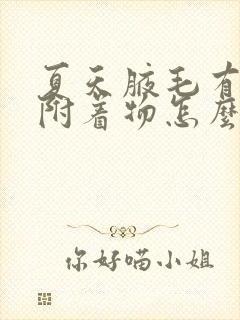 夏天腋毛有
附着物怎麼
你好喵小姐